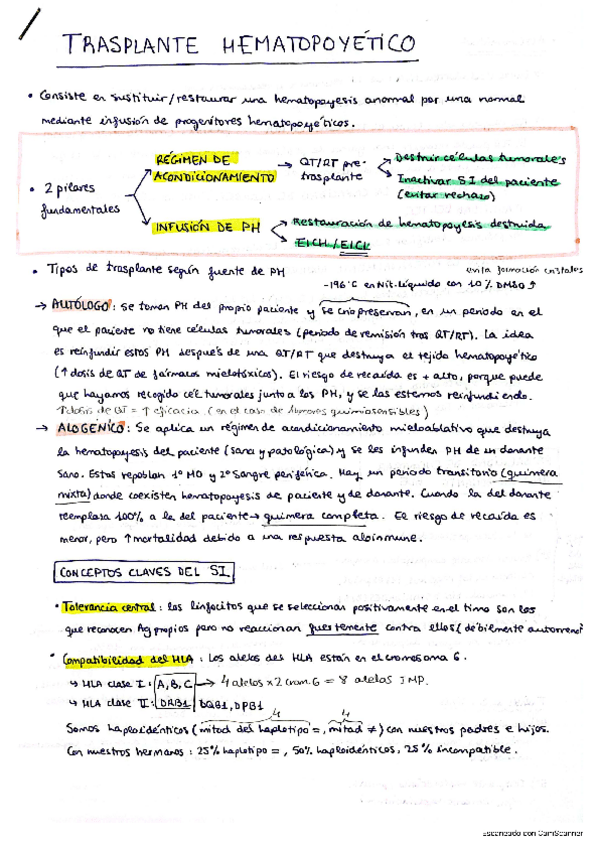 TRASPLANTE HEMATOPOYÉTICO
• Consiste en sustituir/restaurar una hematopoyesis anormal por una normal
mediante infusión de progenitores hematopoyéticos.
• 2 pilares
fundamentales
RÉGIMEN DE
ACONDICIONAMIENTO
→ QT/RT pre-
trasplante
→ Destruir células tumorales
→ Inactivar SI del paciente
(evitar rechazo)
INFUSIÓN DE PH
→ Restauración de hematopoyesis destruida
→ EICH/EICL
• Tipos de trasplante según fuente de PH
evita formación cristales
-196°C en Nit. líquido con 10% DMSO ↑
→ AUTÓLOGO: Se toman PH del propio paciente y se criopreservan, en un periodo en el
que el paciente no tiene células tumorales (periodo de remisión tras QT/RT). La idea
es reinfundir estos PH después de una QT/RT que destruya el tejido hematopoyético
(↑ dosis de QT de fármacos mielotóxicos). El riesgo de recaída es + alto, porque puede
que hayamos recogido cél. tumorales junto a los PH, y se las estemos reinfundiendo.
↑dosis de QT = ↑ eficacia (en el caso de tumores quimiosensibles)
→ ALOGÉNICO: Se aplica un régimen de acondicionamiento mieloablativo que destruya
la hematopoyesis del paciente (sana y patológica) y se les infunden PH de un donante
sano. Estas repoblan 1º MO y 2º Sangre periférica. Hay un periodo transitorio (quimera
mixta) donde coexisten hematopoyesis de paciente y de donante. Cuando la del donante
reemplaza 100% a la del paciente → quimera completa. El riesgo de recaída es
menor, pero ↑mortalidad debido a una respuesta aloinmune.
CONCEPTOS CLAVES DEL SI
• Tolerancia central: los linfocitos que se seleccionan positivamente en el timo son los
que reconocen Ag propios pero no reaccionan fuertemente contra ellos (débilmente autorreac
• Compatibilidad del HLA: Los alelos del HLA están en el cromosoma 6.
↳ HLA clase I: A, B, C → 4 alelos x 2 crom. 6 = 8 alelos IMP.
↳ HLA clase II: DRB1 DQB1, DPB1
4 4
Somos haploidénticos (mitad del haplotipo =, mitad ≠) con nuestros padres e hijos.
Con nuestros hermanos: 25% haplotipo =, 50% haploidénticos, 25% incompatible.
Escaneado con CamScanner